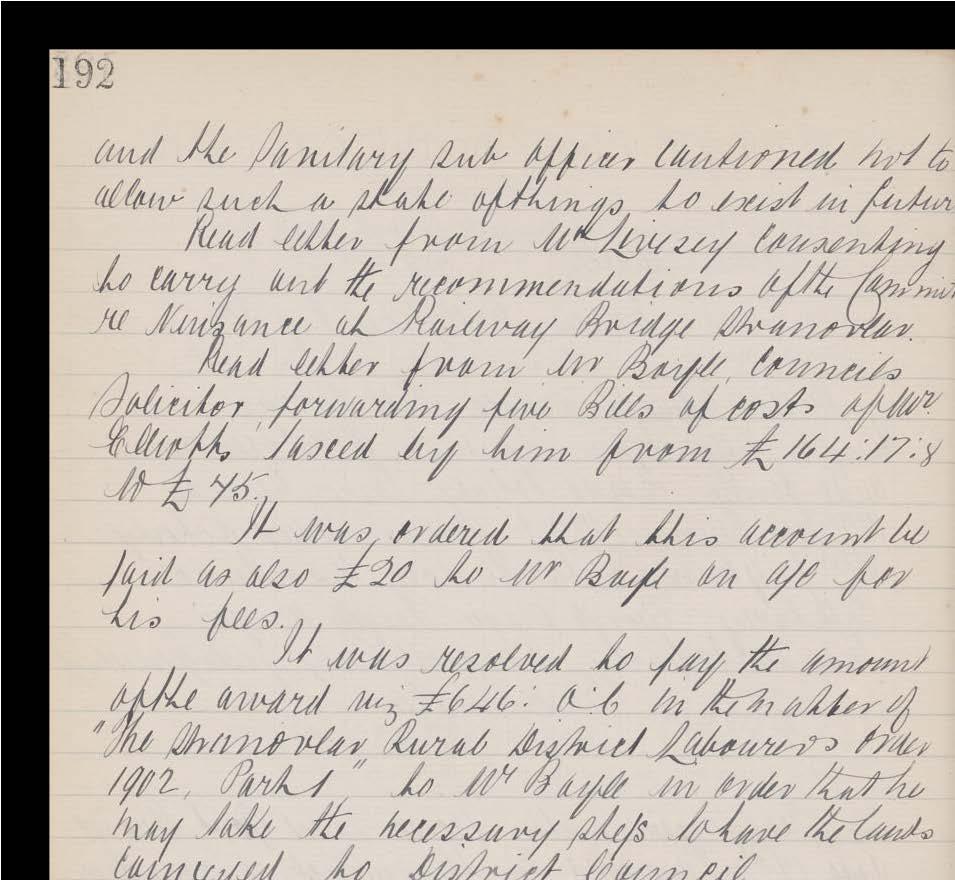 192
and the Sanitary sub officer cautioned not to
allow such a state of things to exist in futur
Read letter from Mr Livesey consenting
to carry out the recommendations of the Commit
re Nuisance at Railway Bridge Stranorlar.
Read letter from Mr Boyle, Councils
Solicitor, forwarding five Bills of costs of Mr
Elliotts, taxed by him from £164:17:8
to £75.
It was ordered that this account be
paid as also £20 to Mr Boyle on a/c for
his fees.
It was resolved to pay the amount
of the award viz £646: 0:6 in the matter of
"The Stranorlar Rural District Labourers order
1902, Part 1" to Mr Boyle in order that he
may take the necessary steps to have the lands
conveyed to District Council